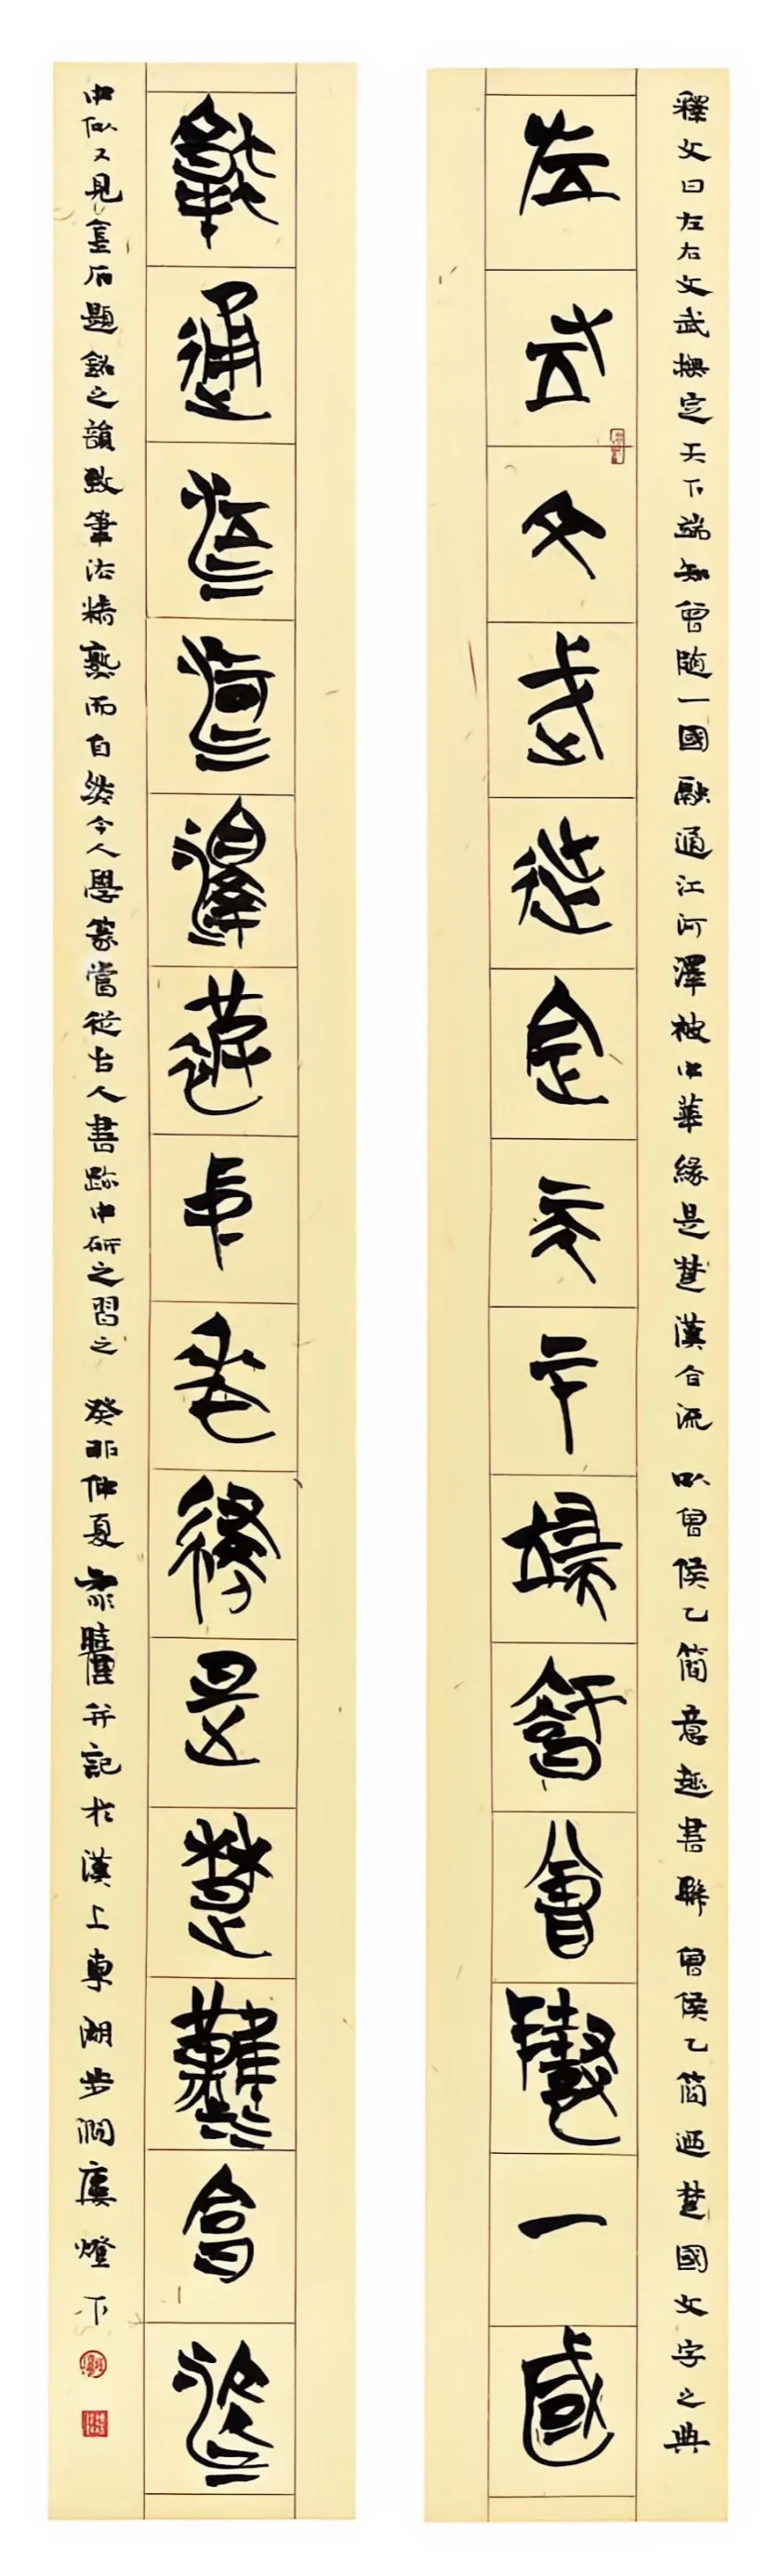 釋文曰左右文武撫定天下端知曾隨一國融通江河澤被中華緣是楚漢合流 以曾侯乙簡意趣書聯 曾侯乙簡迺楚國文字之典
左右文武撫定天下端知曾隨一國
融通江河澤被中華緣是楚漢合流
中似又見金石題銘之韻致筆法精熟而自然今人學篆當從古人書跡中研之習之 癸卯仲夏 并記於漢上東湖步澗廔燈下